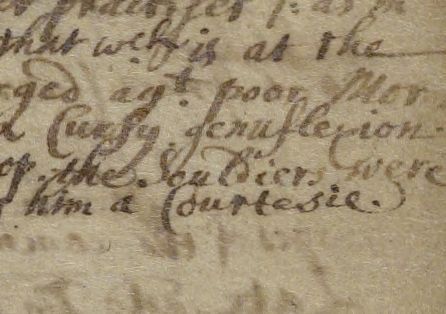 practises
that wch is at the
ged agt. poor Mor
a Cursy genuflexion
or the Souldiers were
him a Courtesie.